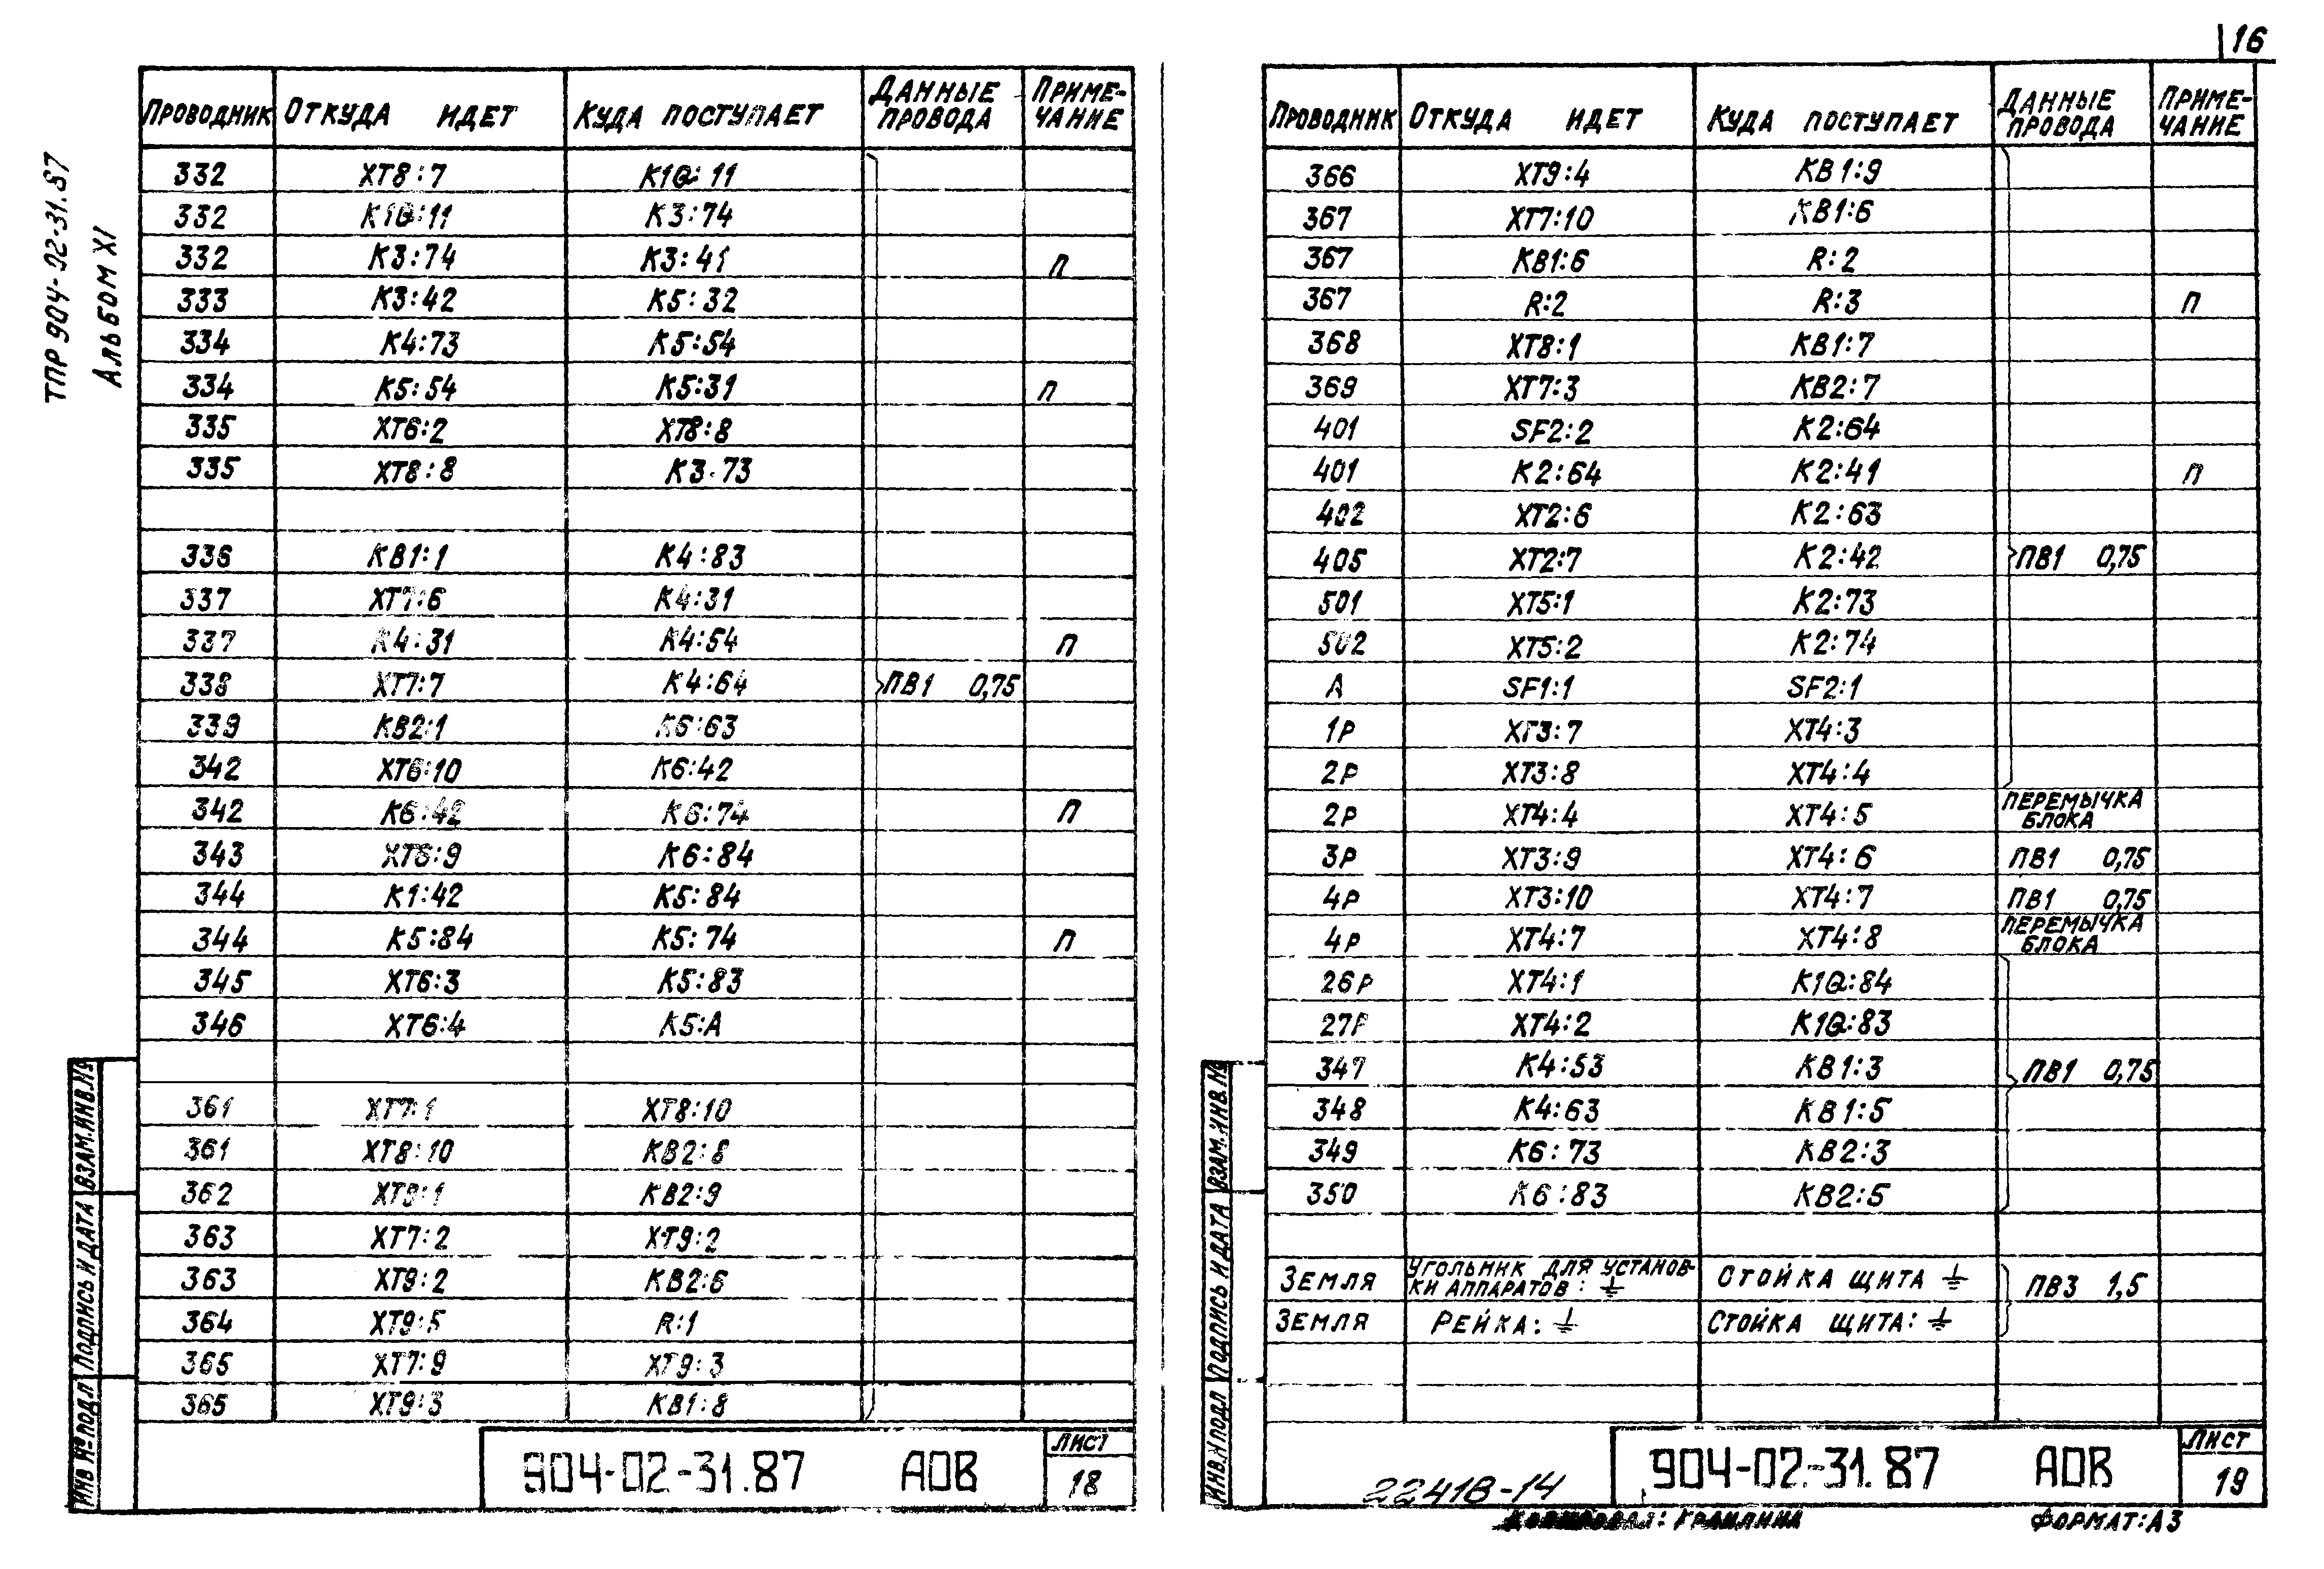 16
ТПР 904-02-31.87
Альбом XI
Проводник Откуда идет Куда поступает Данные провода Приме-чание
332 XT8:7 K1Q:11
332 K1Q:11 K3:74
332 K3:74 K3:41 П
333 K3:42 K5:32
334 K4:73 K5:54
334 K5:54 K5:31 П
335 XT6:2 XT8:8
335 XT8:8 K3.73
336 KB1:1 K4:83
337 XT7:6 K4:31
337 K4:31 K4:54 П
338 XT7:7 K4:64 ПВ1 0,75
339 KB2:1 K6:63
342 XT6:10 K6:42
342 K6:42 K6:74 П
343 XT6:9 K6:84
344 K1:42 K5:84
344 K5:84 K5:74 П
345 XT6:3 K5:83
346 XT6:4 K5:A
361 XT7:1 XT8:10
361 XT8:10 KB2:8
362 XT9:1 KB2:9
363 XT7:2 XT9:2
363 XT9:2 KB2:6
364 XT9:5 R:1
365 XT7:9 XT9:3
365 XT9:3 KB1:8
904-02-31.87 АОВ Лист 18
Инв № подл Подпись и дата Взам.инв.№
Проводник Откуда идет Куда поступает Данные провода Приме-чание
366 XT9:4 KB1:9
367 XT7:10 KB1:6
367 KB1:6 R:2
367 R:2 R:3 П
368 XT8:1 KB1:7
369 XT7:3 KB2:7
401 SF2:2 K2:64
401 K2:64 K2:41 П
402 XT2:6 K2:63
405 XT2:7 K2:42 ПВ1 0,75
501 XT5:1 K2:73
502 XT5:2 K2:74
A SF1:1 SF2:1
1P XT3:7 XT4:3
2P XT3:8 XT4:4
2P XT4:4 XT4:5 Перемычка блока
3P XT3:9 XT4:6 ПВ1 0,75
4P XT3:10 XT4:7 ПВ1 0,75
4P XT4:7 XT4:8 Перемычка блока
26P XT4:1 K1Q:84
27P XT4:2 K1Q:83
347 K4:53 KB1:3 ПВ1 0,75
348 K4:63 KB1:5
349 K6:73 KB2:3
350 K6:83 KB2:5
Земля Угольник для установ-ки аппаратов: ⏚ Стойка щита ⏚ ПВ3 1,5
Земля Рейка: ⏚ Стойка щита: ⏚
904-02-31.87 АОВ Лист 19
Инв.№ подл Подпись и дата Взам.инв.№
22418-14
Формат: А3